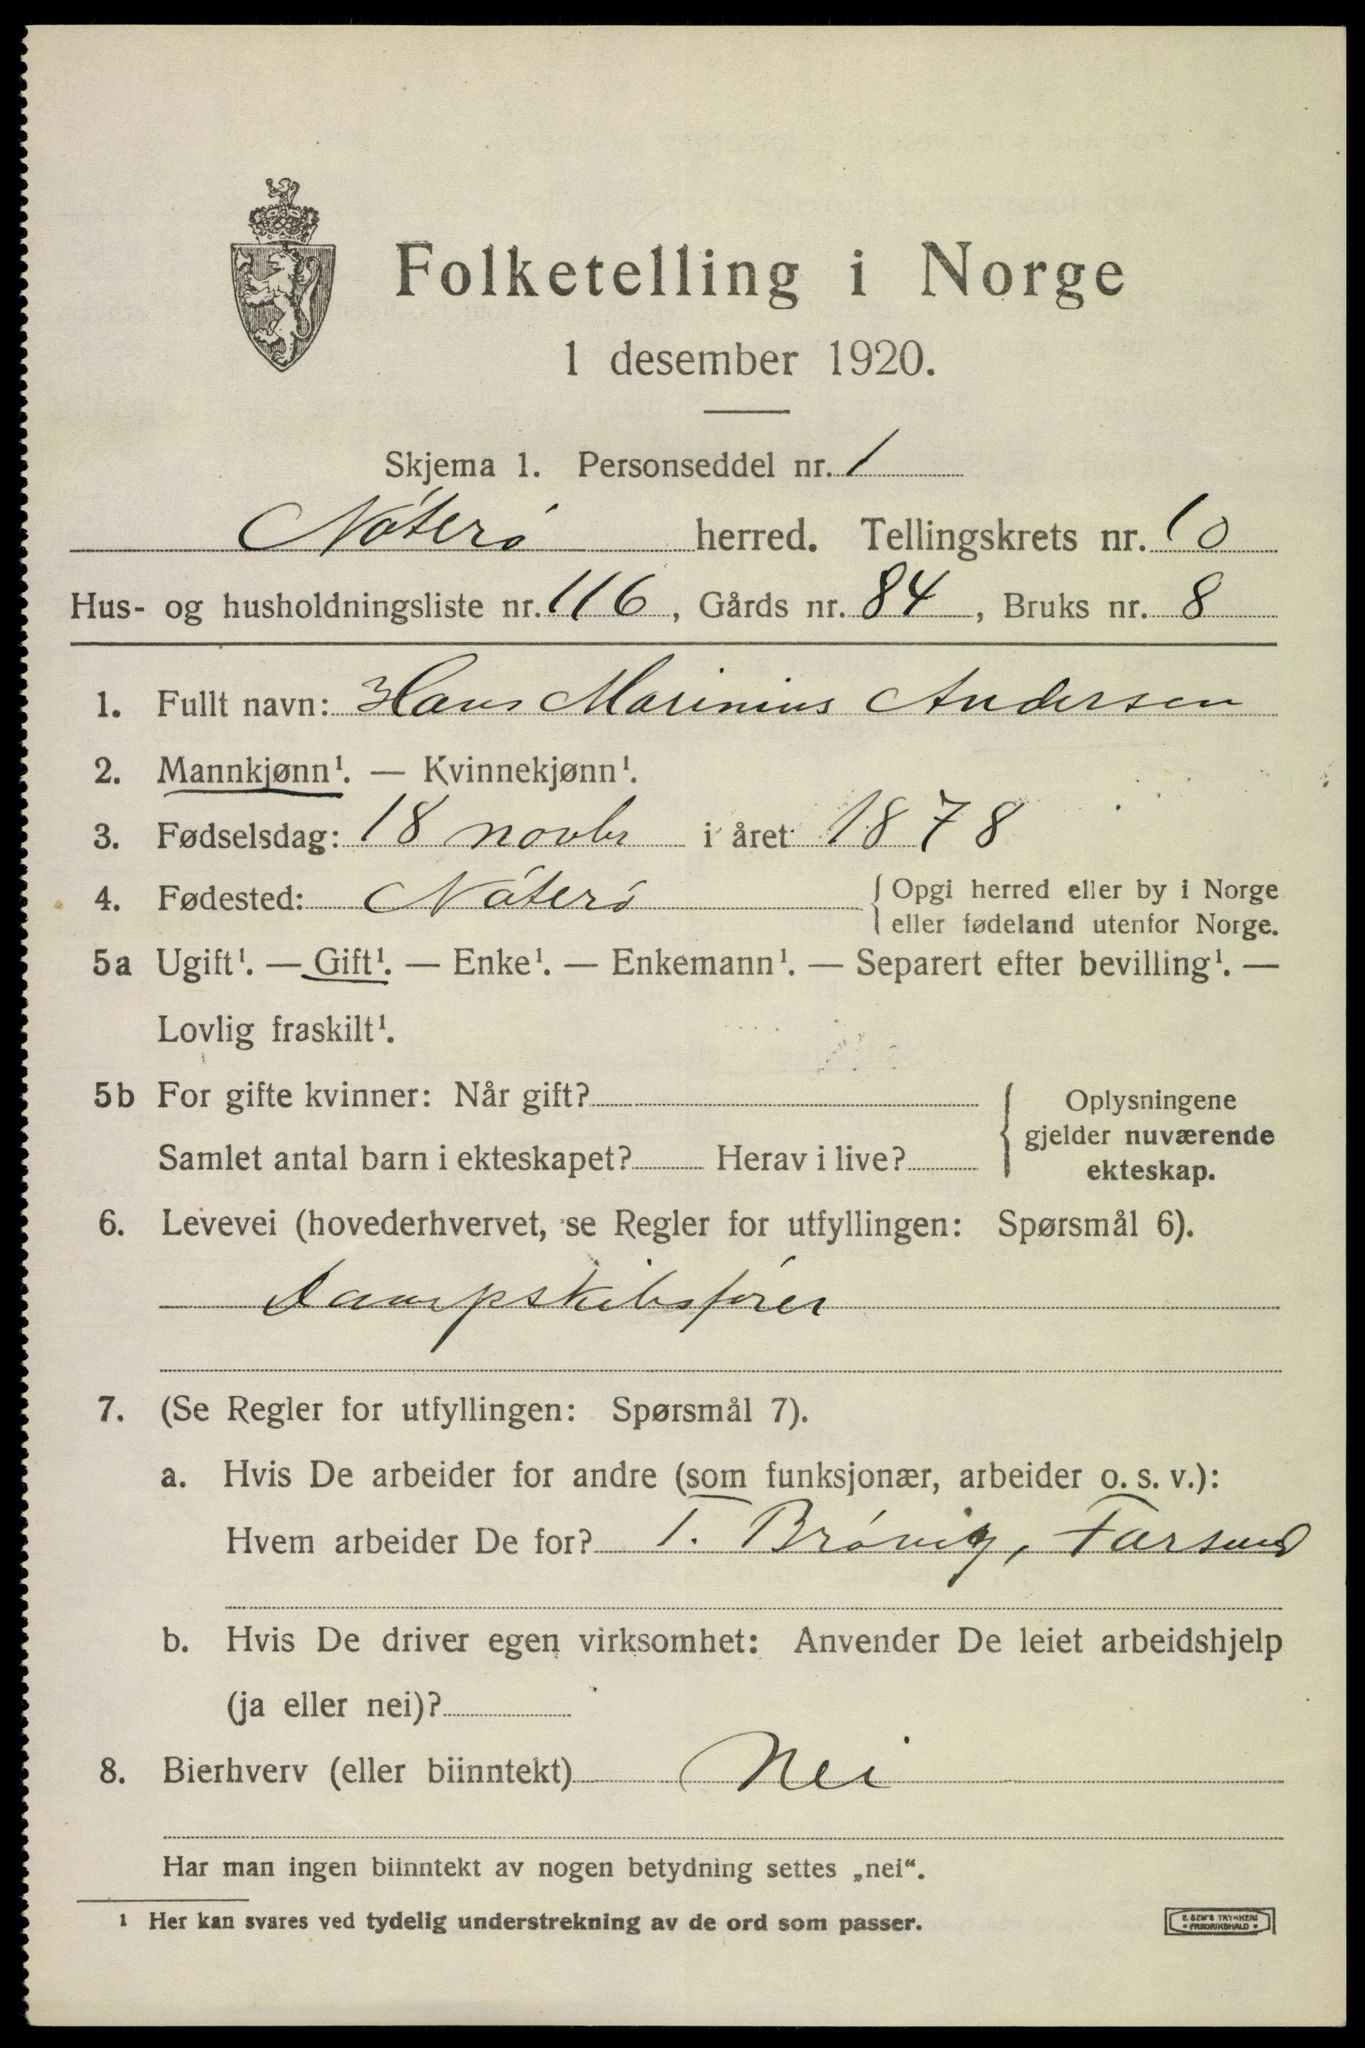 Folketelling i Norge
1 desember 1920.
Skjema 1. Personseddel nr. 1
Nöterö herred. Tellingskrets nr. 10
Hus- og husholdningsliste nr. 116, Gårds nr. 84, Bruks nr. 8
1. Fullt navn: Hans Marinius Andersen
2. Mannkjønn¹. — Kvinnekjønn¹.
3. Fødselsdag: 18 novbr i året 1878
4. Fødested: Nöterö { Opgi herred eller by i Norge
eller fødeland utenfor Norge.
5a Ugift¹. — Gift¹. — Enke¹. — Enkemann¹. — Separert efter bevilling¹. —
Lovlig fraskilt¹.
5b For gifte kvinner: Når gift?
Samlet antal barn i ekteskapet? Herav i live?
Oplysningene
gjelder nuværende
ekteskap.
6. Levevei (hovederhvervet, se Regler for utfyllingen: Spørsmål 6).
Dampskibsfører
7. (Se Regler for utfyllingen: Spørsmål 7).
a. Hvis De arbeider for andre (som funksjonær, arbeider o. s. v.):
Hvem arbeider De for? T. Brövig, Farsund
b. Hvis De driver egen virksomhet: Anvender De leiet arbeidshjelp
(ja eller nei)?
8. Bierhverv (eller biinntekt) Nei
Har man ingen biinntekt av nogen betydning settes „nei“.
1 Her kan svares ved tydelig understrekning av de ord som passer.
E. SEM'S TRYKKERI
• FREDRIKSHALD •